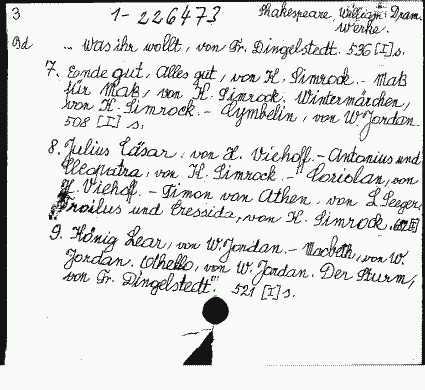 3 1-226473 Shakespeare, William: Dram.
Werke.
Bd ... Was ihr wollt, von Fr. Dingelstedt. 536 [I] s.
7. Ende gut, Alles gut, von K. Simrock. - Maß
für Maß, von K. Simrock. Wintermärchen,
von K. Simrock. - Cymbelin, von W. Jordan.
508 [I] s.
8. Julius Cäsar, von H. Viehoff. - Antonius und
Cleopatra, von K. Simrock. - Coriolan, von
H. Viehoff. - Timon von Athen. von L. Seeger.
Troilus und Cressida, von K. Simrock.
9. König Lear, von W. Jordan. - Macbeth, von W.
Jordan. Othello, von W. Jordan. Der Sturm,
von Fr. Dingelstedt. 521 [I] s.